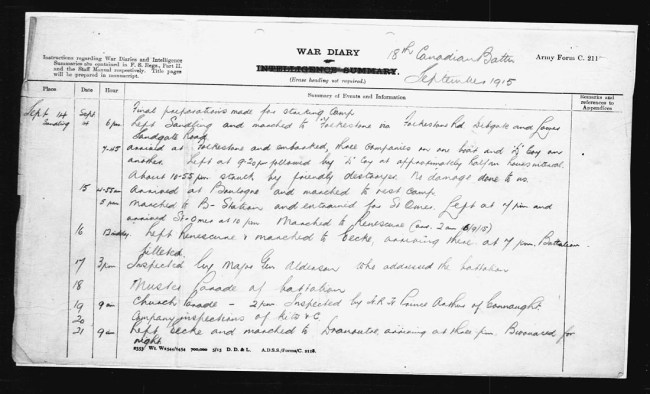 WAR DIARY
18th Canadian Battn
Instructions regarding War Diaries and Intelligence
Summaries are contained in F. S. Regs., Part II.
and the Staff Manual respectively. Title pages
will be prepared in manuscript.
or
INTELLIGENCE SUMMARY.
(Erase heading not required.)
Army Form C. 211
September 1915
Place
Date
Hour
Summary of Events and Information
Remarks and
references to
Appendices
Sept 14 Sept Final preparations made for striking Camp
Sandling 14 6 pm Left Sandling and marched to Folkestone via Folkestone Rd and Lower
Sandgate Road
7.45 arrived at Folkestone and embarked, three companies on one boat and Coy on
another left at 9-20 pm followed by Coy at approximately half an hours interval
About 10-55 pm struck by friendly destroyer. No damage done to us.
15 4-55am Arrived at Boulogne and marched to rest camp.
5 pm Marched to B- Station and entrained for St Omer. Left at 7 pm and
arrived St-Omer at 10 pm Marched to Renescure 2 am
16 Left Renescure & marched to Eecke, arriving there at 7 pm. Battalion
billeted.
17 3pm Inspected by Major Gen Alderson who addressed the battalion
18 Muster Parade of battalion
19 9 am Church Parade - 2 pm Inspected by H R H Prince Arthur of Connaught
20 Company inspections of kits &c.
21 9am Left Eecke and marched to Dranoutre arriving at three pm. Bivouaced for
night
2353 Wt. W2544/1454 700,000 5/15 D. D. & L. A.D.S.S./Forms/C. 2118.